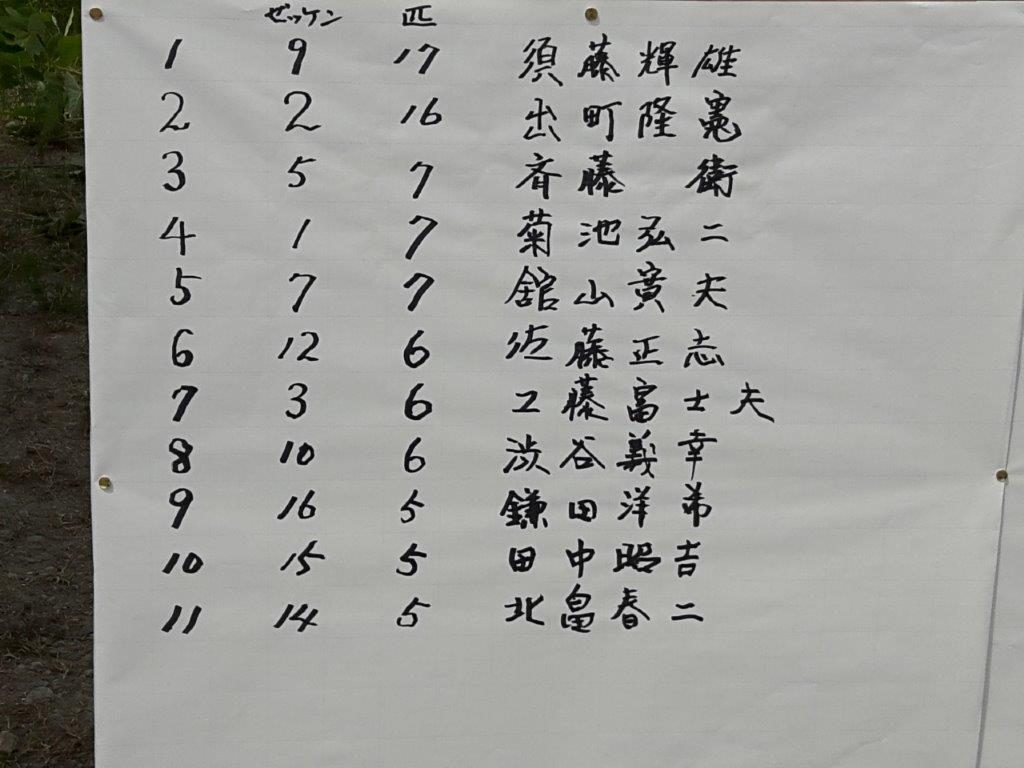 ゼッケン 匹
1 9 17 須藤輝雄
2 2 16 出町隆
3 5 7 斉藤 衛
4 1 7 菊池弘二
5 7 7 舘山廣夫
6 12 6 佐藤正志
7 3 6 工藤富士夫
8 10 6 渋谷義幸
9 16 5 鎌田洋弟
10 15 5 田中昭吉
11 14 5 北畠春二